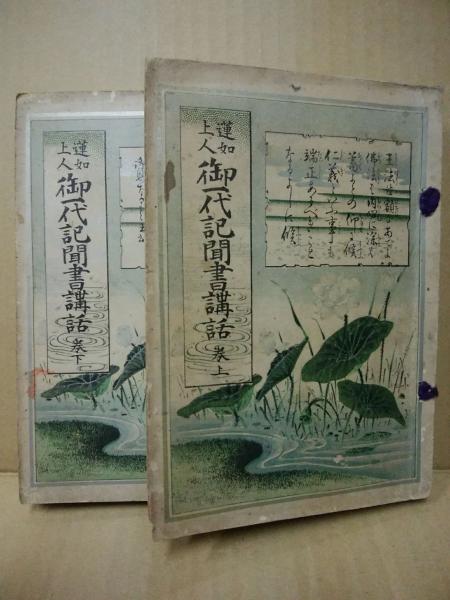 蓮如
上人
御一代記聞書講話
巻上
王法は額にあてよ
佛法は内心に深く
蓄よとの仰に候
仁義といふ事も
端正あるべきこと
なるよしに候
蓮如
上人
御一代記聞書講話
巻下